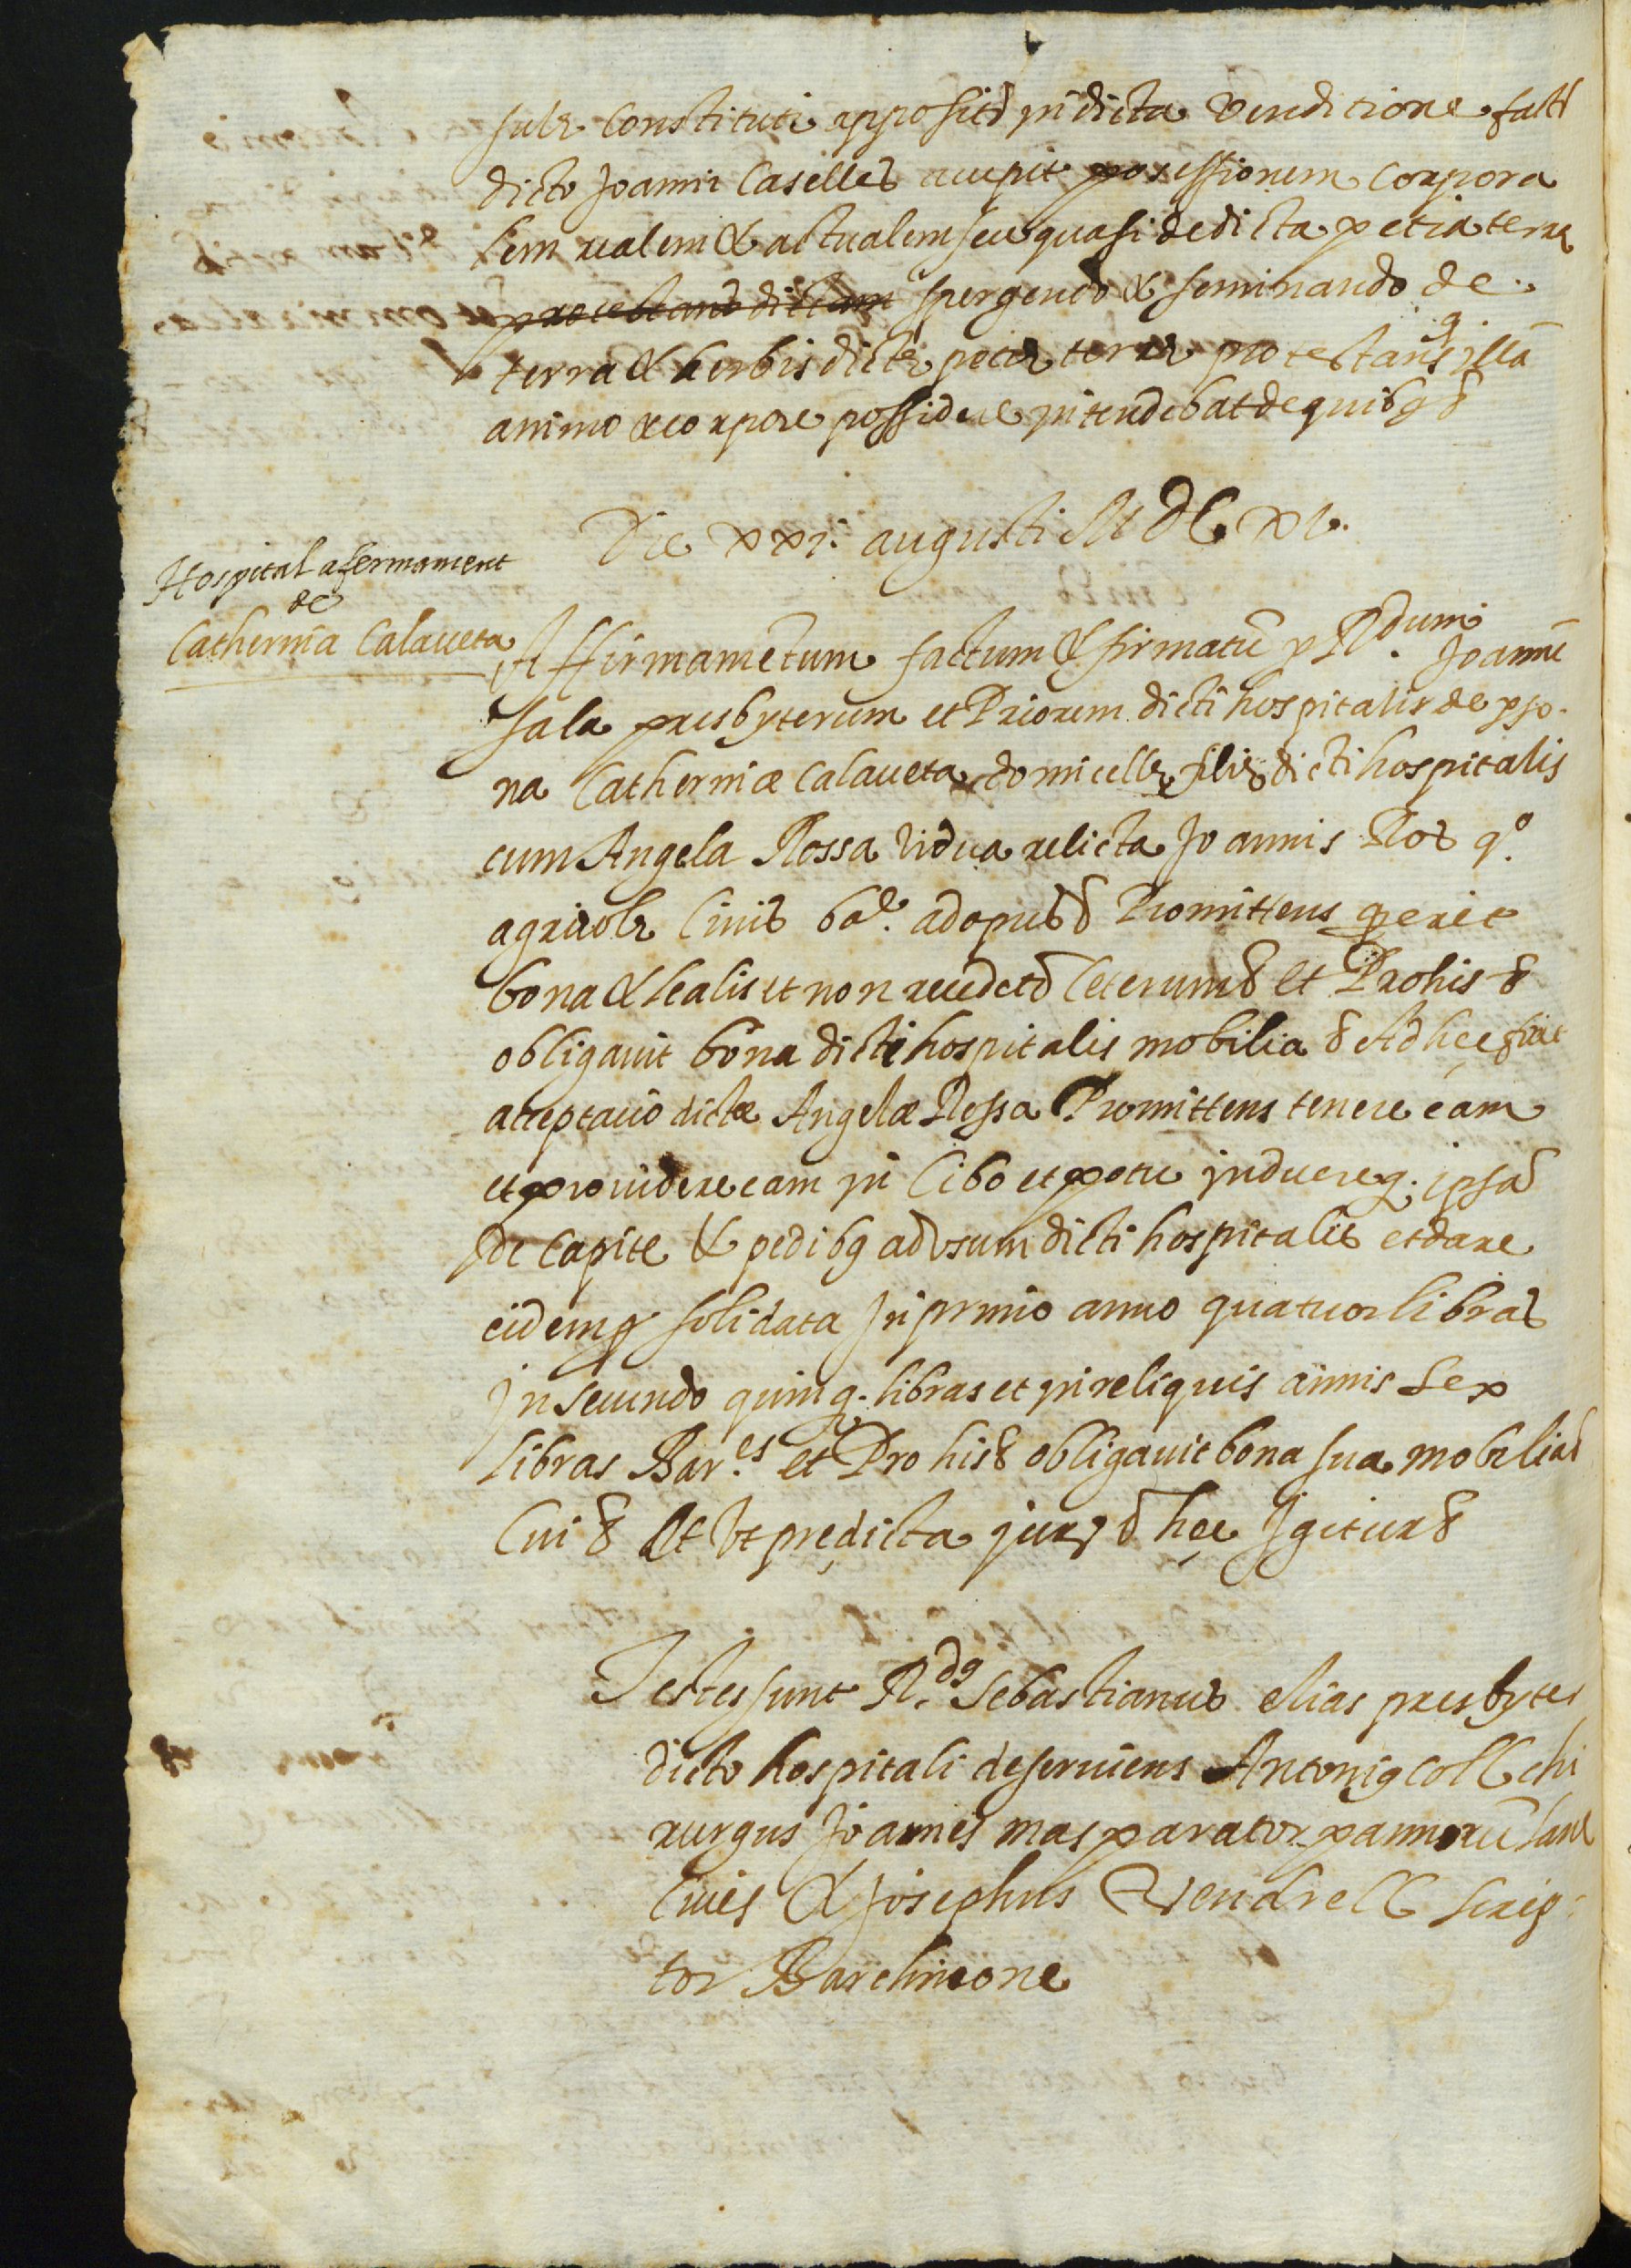 sulæ constituti appositi in dicta venditione facti
dicto Joanni Caselles accepit possessionem corpora
lem realem & actualem seu quasi de dicta petia terræ
protestans dictam spergendo & seminando de
terra & herbis dictæ petiæ terræ protestans q illā
animo & corpore possidere intendebat de quibq &
Die xxi. augusti M DC XV.
Hospital afermament
de
Catherina Calaveta
Affirmamētum factum & firmatū p R.dum Joannē
Sala presbyterum et Priorem dicti hospitalis de pso-
na Catherinæ Calaveta domicellæ filiæ dicti hospitalis
cum Angela Rossa vidua relicta Joannis Ros qº
agricolæ Civis bar. ad opus & Promittens q erit
bona & lealis et non recedet & Ceterum & et Pro his &
obligavit bona dicti hospitalis mobilia & Ad hęc fuit
acceptatio dictæ Angelæ Rossa Promittens tenere eam
et providere eam in Cibo et potu induereq. ipsā
de capite & pedibq ad vsum dicti hospitalis et dare
eidem p solidata In primo anno quatuor libras
In secundo quinq. libras et in reliquis annis sex
libras Bar.es et Pro his & obligavit bona sua mobilia &
Cui & Et Vt prędicta jur. & hęc Igitur &
Testes sunt R.dq Sebastianus elias presbyter
dicto hospitali deserviens Antoniq Coll chi
rurgus Joannes mas parator pannorū lanæ
Cives & Josephus Vendrell scrip-
tor Barchinone